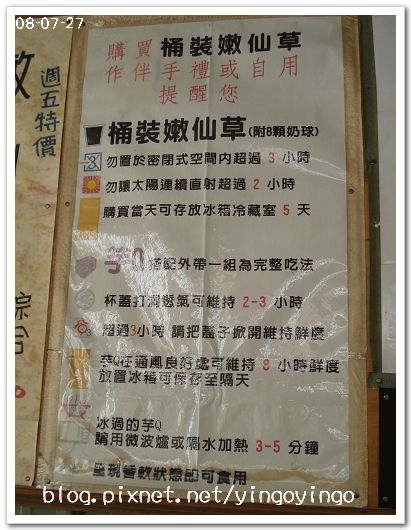 08-07-27
週五特價
購買 桶裝嫩仙草
作伴手禮或自用
提醒您
桶裝嫩仙草(附8顆奶球)
勿置於密閉式空間內超過 3 小時
勿讓太陽連續直射超過 2 小時
購買當天可存放冰箱冷藏室 5 天
芋Q 搭配外帶一組為完整吃法
杯蓋打洞透氣可維持 2-3 小時
超過3小時 請把蓋子掀開維持鮮度
芋Q在通風良好處可維持 8 小時鮮度
放置冰箱可保存至隔天
冰過的芋Q
請用微波爐或隔水加熱 3-5 分鐘
呈現香軟狀態即可食用
blog.pixnet.net/yingoyingo